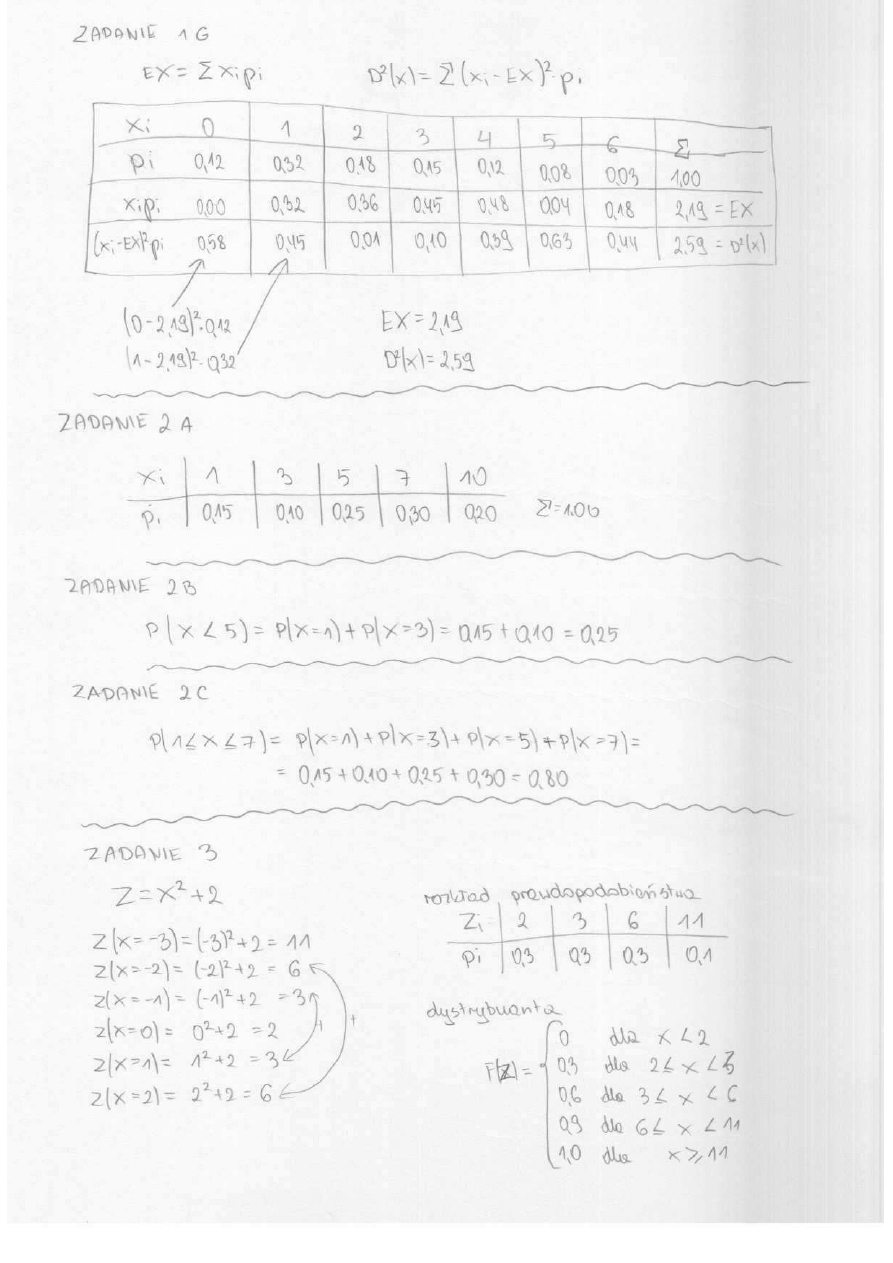 ZADANIE 1G
EX = Σ xipi D²(x) = Σ (xi - EX)² · pi
xi 0 1 2 3 4 5 6 Σ
pi 0,12 0,32 0,18 0,15 0,12 0,08 0,03 1,00
xipi 0,00 0,32 0,36 0,45 0,48 0,04 0,18 2,19 = EX
(xi-EX)²pi 0,58 0,45 0,01 0,10 0,39 0,63 0,44 2,59 = D²(x)
(0-2,19)²·0,12 EX = 2,19
(1-2,19)²·0,32 D²(x) = 2,59
ZADANIE 2A
xi 1 3 5 7 10
pi 0,15 0,10 0,25 0,30 0,20 Σ=1.00
ZADANIE 2B
P(X<5) = P(X=1) + P(X=3) = 0,15 + 0,10 = 0,25
ZADANIE 2C
P(1≤X≤7) = P(X=1) + P(X=3) + P(X=5) + P(X=7) =
= 0,15 + 0,10 + 0,25 + 0,30 = 0,80
ZADANIE 3
Z = X² + 2
Z(X=-3) = (-3)²+2 = 11
Z(X=-2) = (-2)²+2 = 6
Z(X=-1) = (-1)²+2 = 3
Z(X=0) = 0²+2 = 2
Z(X=1) = 1²+2 = 3
Z(X=2) = 2²+2 = 6
+ +
rozkład prawdopodobieństwa
Zi 2 3 6 11
pi 0,3 0,3 0,3 0,1
dystrybuanta
F(Z) = { 0 dla x < 2
0,3 dla 2 ≤ x < 3
0,6 dla 3 ≤ x < 6
0,9 dla 6 ≤ x < 11
1,0 dla x ≥ 11